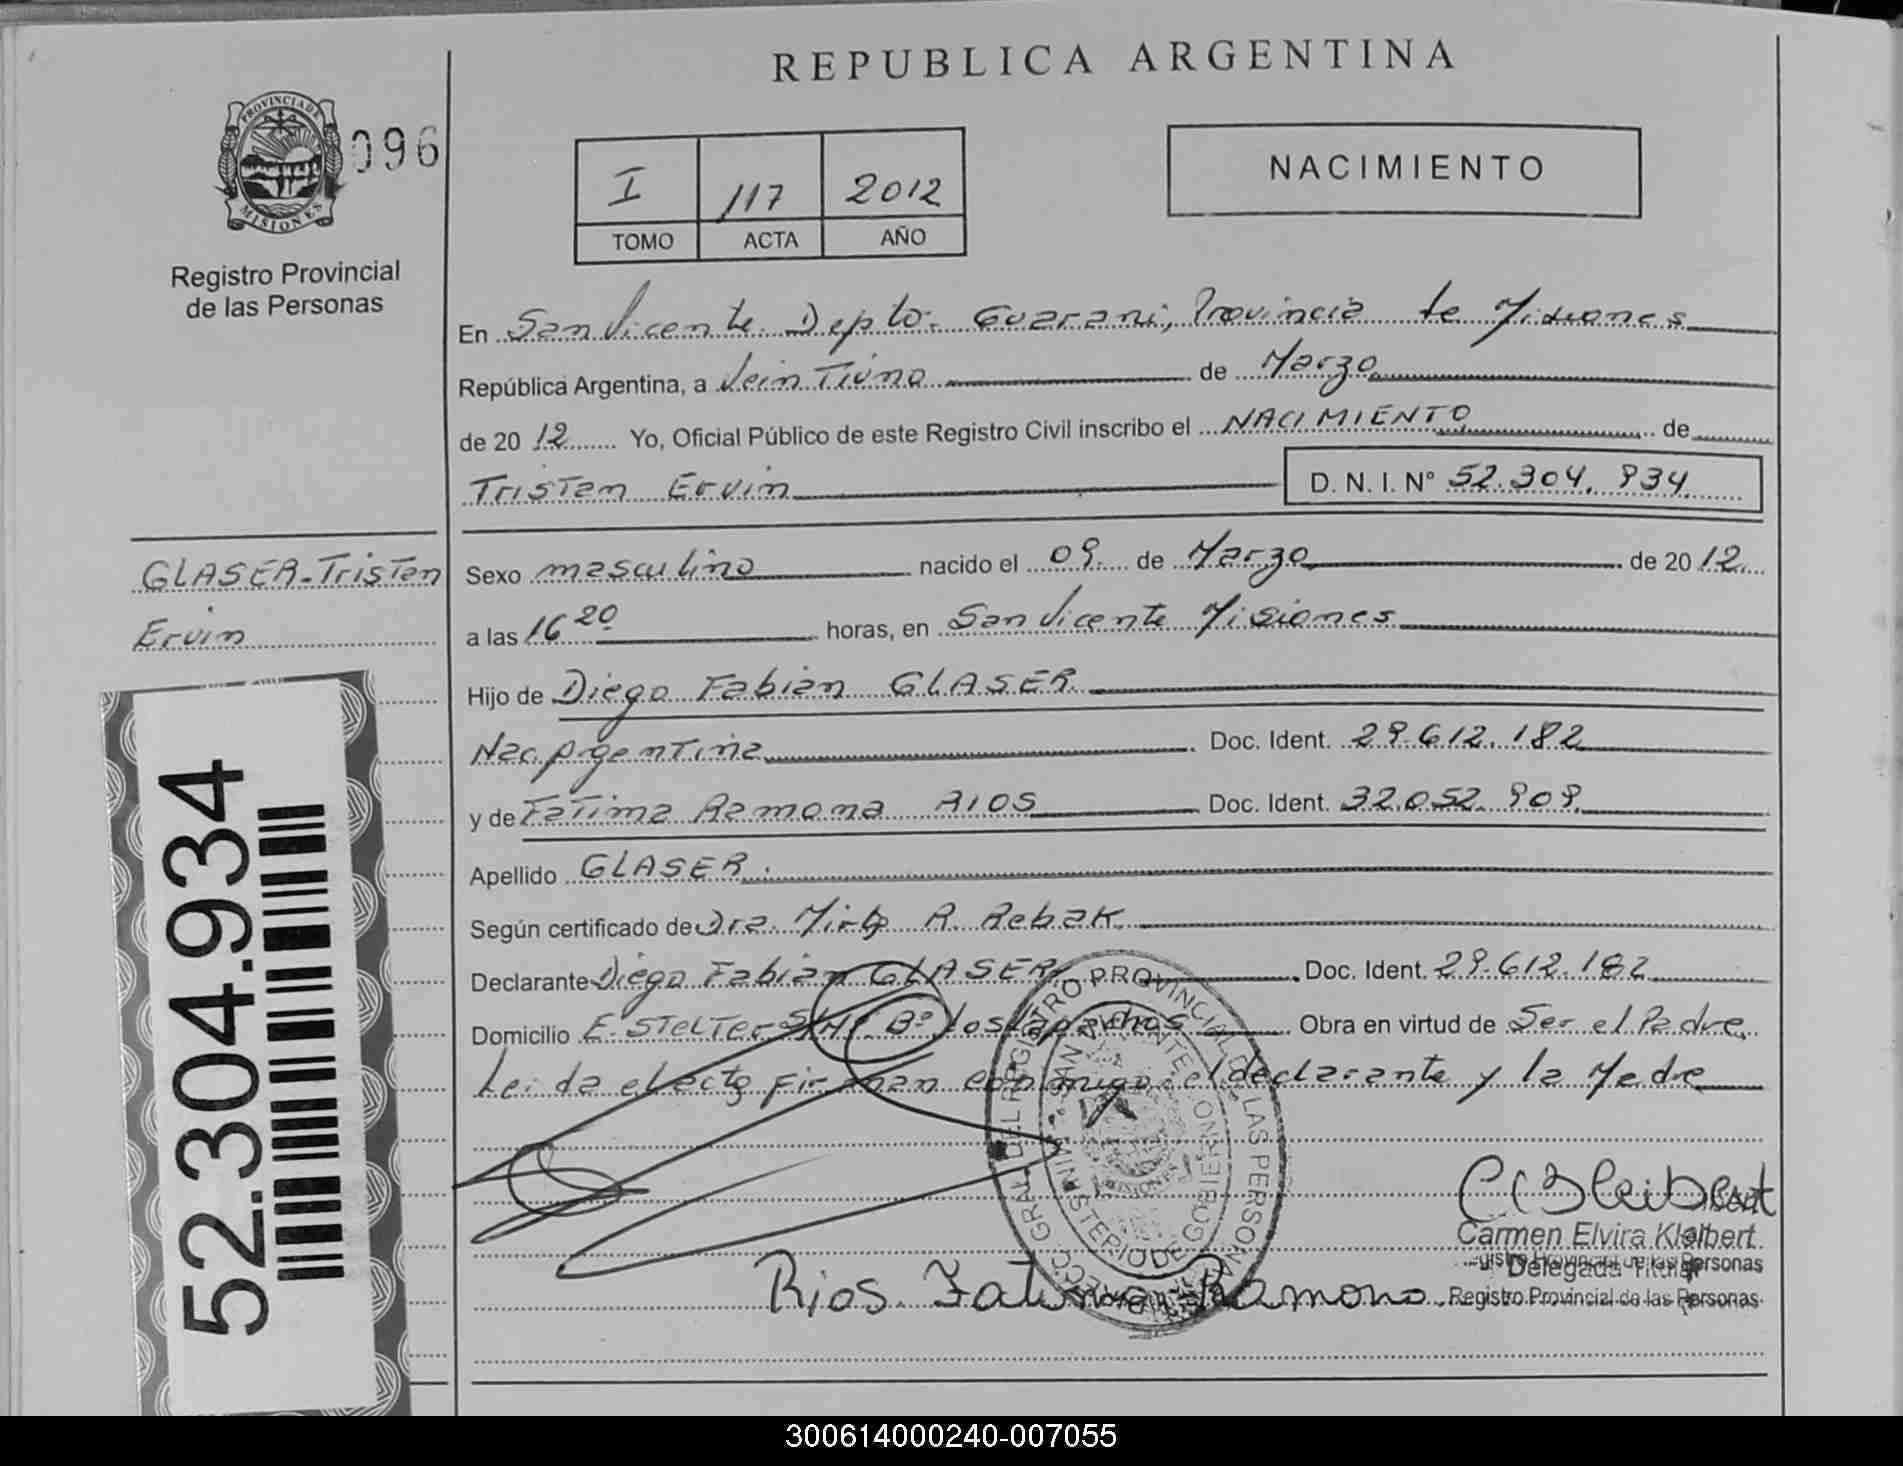 REPUBLICA ARGENTINA
PROVINCIA DE
MISIONES
096
Registro Provincial
de las Personas
I 117 2012
TOMO ACTA AÑO
NACIMIENTO
En San Vicente Depto. Guarani, Provincia de Misiones
República Argentina, a VeinTiúno de Marzo
de 20 12 Yo, Oficial Público de este Registro Civil inscribo el NACIMIENTO de
Tristan Ervin D. N. I. N° 52.304.934
GLASER-Tristan
Ervin
Sexo masculino nacido el 09 de Marzo de 2012
a las 16 20 horas, en San Vicente Misiones
Hijo de Diego Fabian GLASER
Nac. Argentina Doc. Ident. 29.612.182
y de Fatima Ramona RIOS Doc. Ident. 32.052.909
Apellido GLASER.
Según certificado de Dra. R. Rebak
Declarante Diego Fabian GLASER Doc. Ident. 29.612.182
Domicilio E. STelTer S/N° B° Los Obra en virtud de Ser el Padre
Leida el acta firman conmigo el declarante y la Madre
52.304.934
DEL REGISTRO PROVINCIAL DE LAS PERSONAS
SAN VICENTE
MINISTERIO DE GOBIERNO
MISIONES
Carmen Elvira Kleibert
Delegada Titular
Registro Provincial de las Personas
Rios Fatima Ramona
300614000240-007055